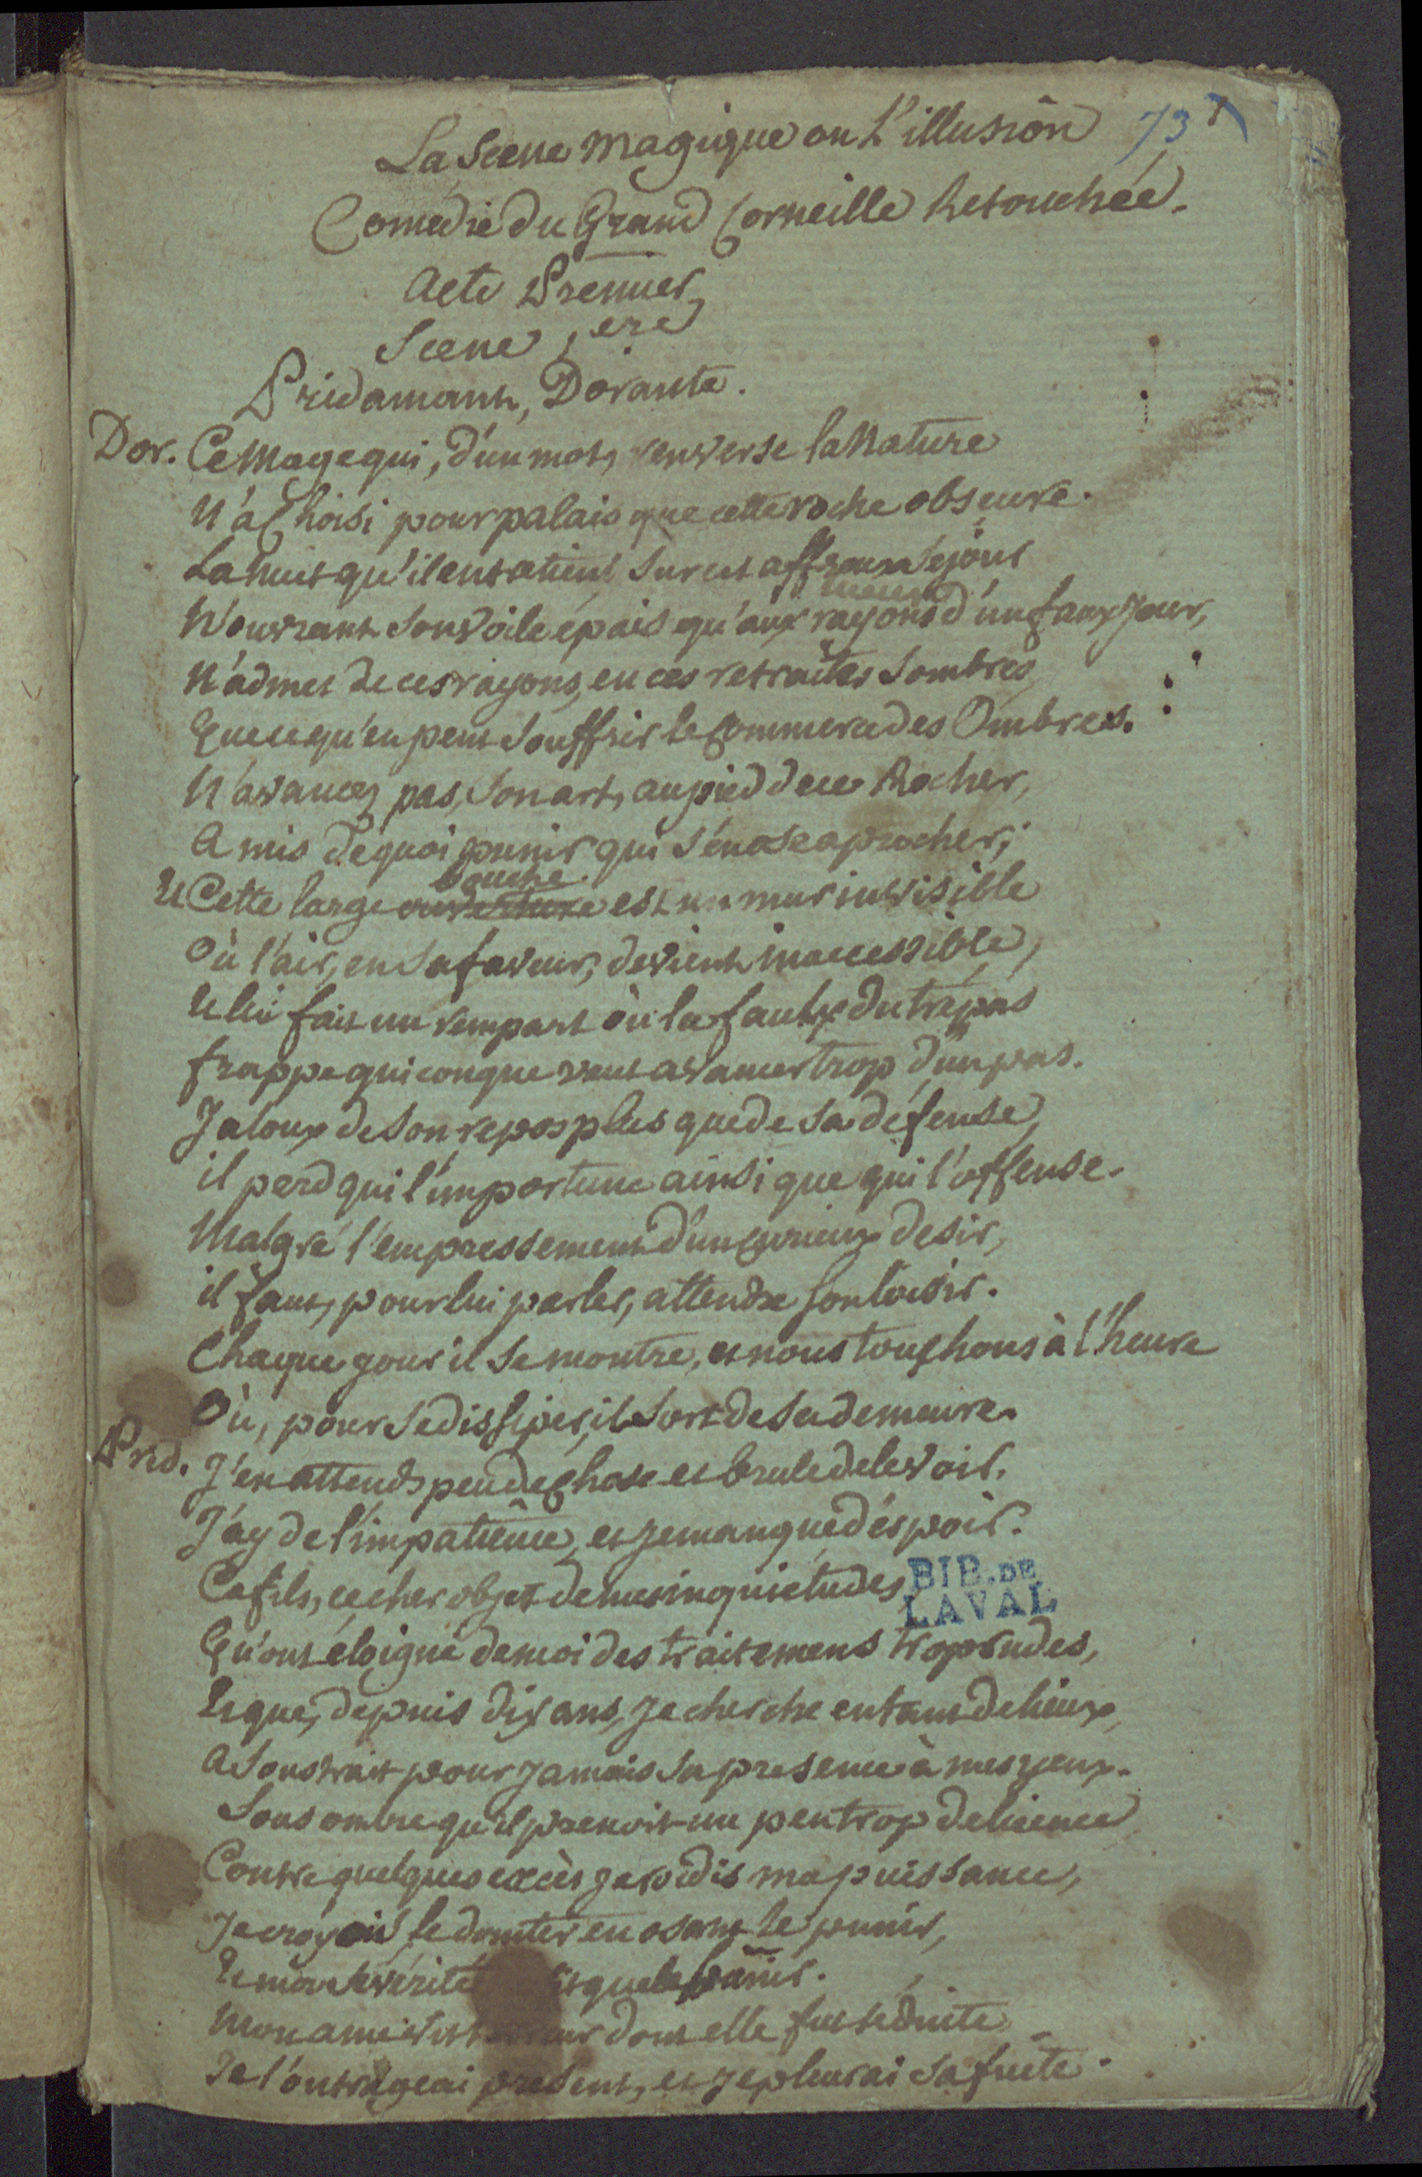 La Scene Magique ou L'illusion 73
Comédie du Grand Corneille Retouchée.
Acte Premier
Scene 1ere
Pridamant, Dorante.
Dor. Ce Mage qui, d'un mot, renverse la Nature
N'a Choisi pour palais que cette roche obscure.
La nuit qu'il entretient sur cet affreux séjour
N'ouvrant son voile épais qu'aux rayons d'un faux jour,
N'admet de ces rayons, en ces retraites sombres
Que ce qu'en peut souffrir le Commerce des Ombres.
N'avancez pas, son art, au pied de ce Rocher,
A mis de quoi punir qui s'en ose aprocher;
Et Cette large ouverture bouche est un mur invisible
Où l'air, en sa faveur, devient inaccessible,
Et lui fait un rempart où la faulx du trépas
frappe quiconque veut avancer trop d'un pas.
Jaloux de son repos plus que de sa défense,
il perd qui l'importune ainsi que qui l'offense.
Malgré l'empressement d'un Curieux desir,
il faut, pour lui parler, attendre son loisir.
Chaque jour il se montre, et nous touchons à l'heure
Où, pour se dissiper, il sort de sa demeure.
Prid. J'en attends peu de Chose et brule de le voir.
J'ay de l'impatience, et je manque d'éspoir.
Ce fils, ce cher objet de mes inquiétudes,
BIB. DE
LAVAL
Qu'ont éloigné de moi des traitemens trop rudes,
Et que, depuis dix ans, je cherche en tant de lieux,
A soustrait pour jamais sa presence à mes yeux.
Sous ombre qu'il prenoit un peu trop de licence
Contre quelques excès je roidis ma puissance,
Je croyois le domter en osant le punir,
Et ma sévérité que le banir.
Mon ame vit l'erreur dont elle fut séduite
Je l'outrageai présent, et je pleurai sa fuite.